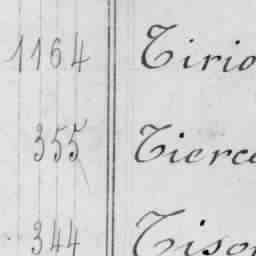 1164 Tirio
355 Tierce
344 Tiso